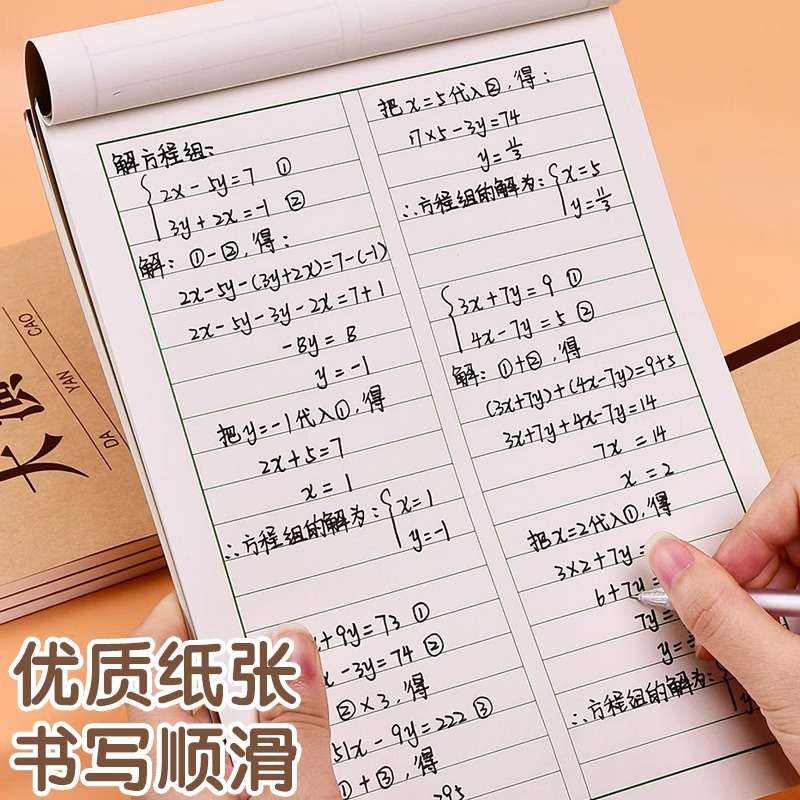 解方程组:
2x-5y=7 ①
3y+2x=-1 ②
解: ①-②,得:
2x-5y-(3y+2x)=7-(-1)
2x-5y-3y-2x=7+1
-8y=8
y=-1
把y=-1代入①,得
2x+5=7
x=1
∴方程组的解为:{x=1
y=-1
x+9y=73 ①
x-3y=74 ②
②×3,得
51x-9y=222 ③
①+③,得
295
把x=5代入②,得:
17×5-3y=74
y=11/3
∴方程组的解为:{x=5
y=11/3
3x+7y=9 ①
4x-7y=5 ②
解: ①+②,得
(3x+7y)+(4x-7y)=9+5
3x+7y+4x-7y=14
7x=14
x=2
把x=2代入①,得
3×2+7y=
6+7y=
7y=
y=
∴方程组的解为:{
大演
DA YAN CAO
优质纸张
书写顺滑